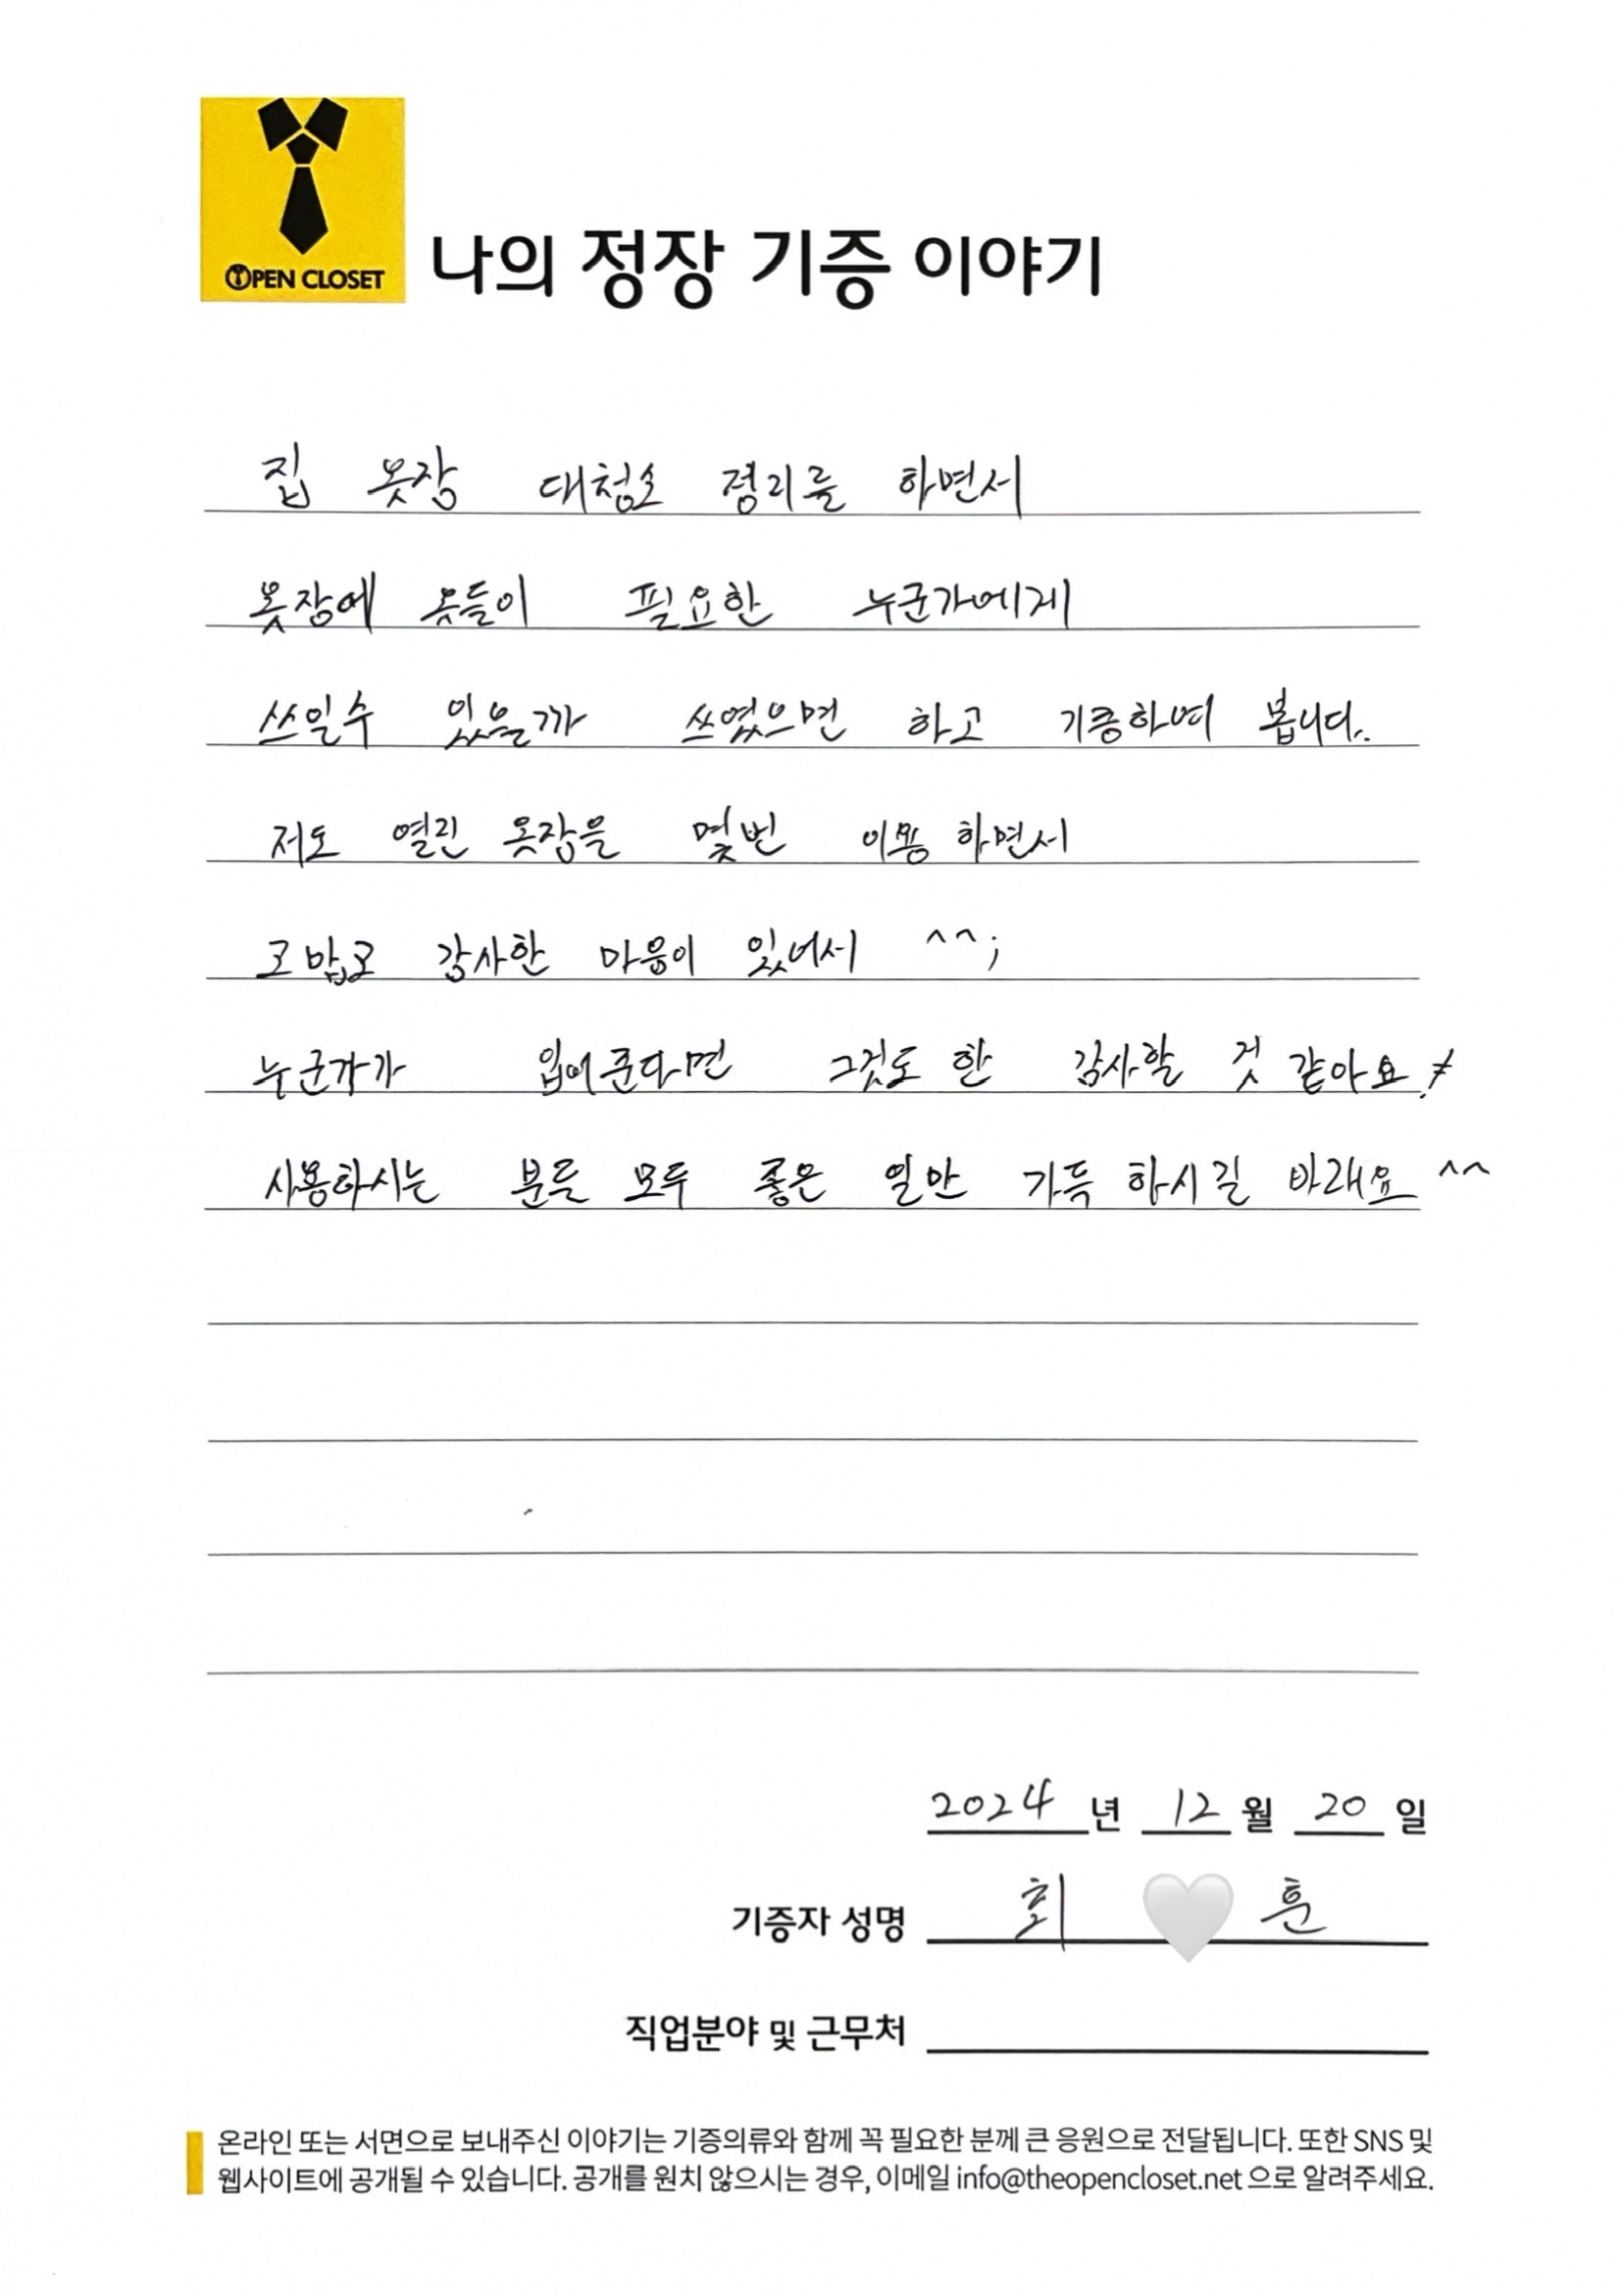 OPEN CLOSET
나의 정장 기증 이야기
집 옷장 대청소 정리를 하면서
옷장에 옷들이 필요한 누군가에게
쓰일수 있을까 쓰였으면 하고 기증하여 봅니다..
저도 열린 옷장을 몇번 이용 하면서
고맙고 감사한 마음이 있어서 ^^;
누군가가 입어준다면 그것도 한 감사할 것 같아요.
사용하시는 분들 모두 좋은 일만 가득 하시길 바래요 ^^
2024 년 12 월 20 일
기증자 성명 최 훈
직업분야 및 근무처
온라인 또는 서면으로 보내주신 이야기는 기증의류와 함께 꼭 필요한 분께 큰 응원으로 전달됩니다. 또한 SNS 및
웹사이트에 공개될 수 있습니다. 공개를 원치 않으시는 경우, 이메일 info@theopencloset.net 으로 알려주세요.